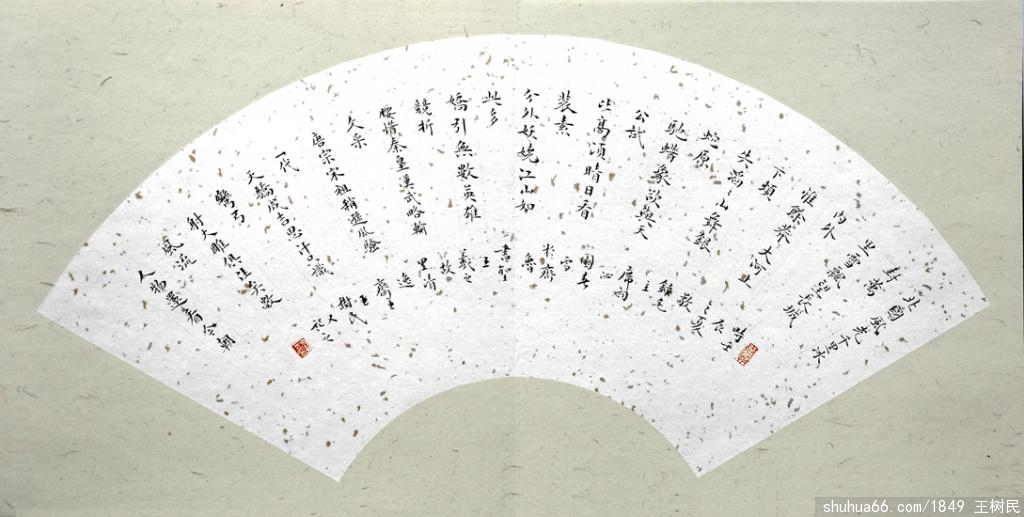 北國風光千里冰
封萬
里雪飄望長城
內外
惟餘莽大河上
下頓
失滔山舞銀
蛇原
馳蠟象欲與天
公試
比高須晴日看
裝素
分外妖嬈江山如
此多
嬌引無數英雄
競折
腰惜秦皇漢武略輸
文采
唐宗宋祖稍遜風騷
一代
天驕成吉思汗只識
彎弓
射大雕俱往矣數
風流
人物還看今朝
時壬
辰之
錄毛
主
席
沁
園春
雪
於齊
魯
書聖
王
羲之
故
里
逸
齋主
王
樹民
shuhua66.com/1849 王树民